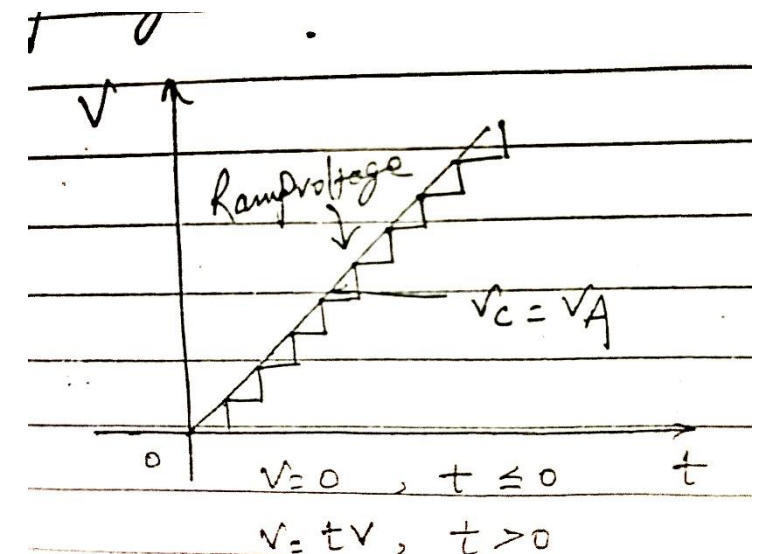 V
Ramp voltage
Vc = VA
0
t
V = 0 , t ≤ 0
V = tV , t > 0